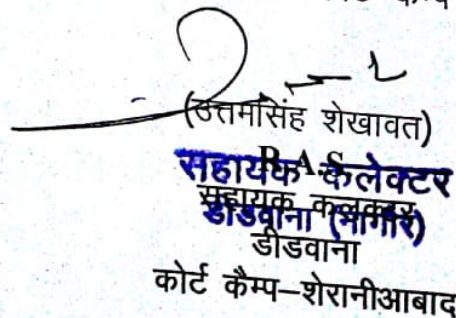 (उत्तमसिंह शेखावत)
R.A.S
सहायक कलेक्टर
सहायक कलक्टर
डीडवाना (नागौर)
डीडवाना
कोर्ट कैम्प–शेरानीआबाद